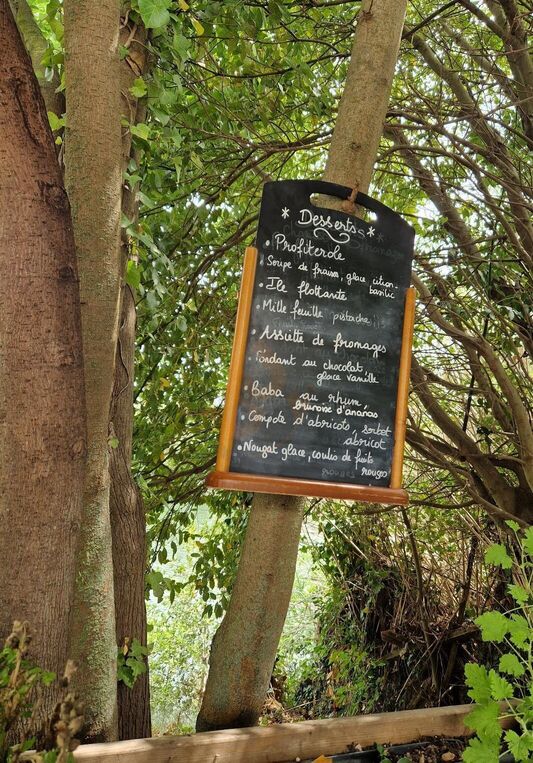 * Desserts *
• Profiterole
• Soupe de fraise, glace citron-
basilic
• Ile flottante
• Mille feuille pistache
• Assiette de fromages
• Fondant au chocolat,
glace vanille
• Baba au rhum
brunoise d'ananas
• Compote d'abricots, sorbet
abricot
• Nougat glace, coulis de fruits
rouges